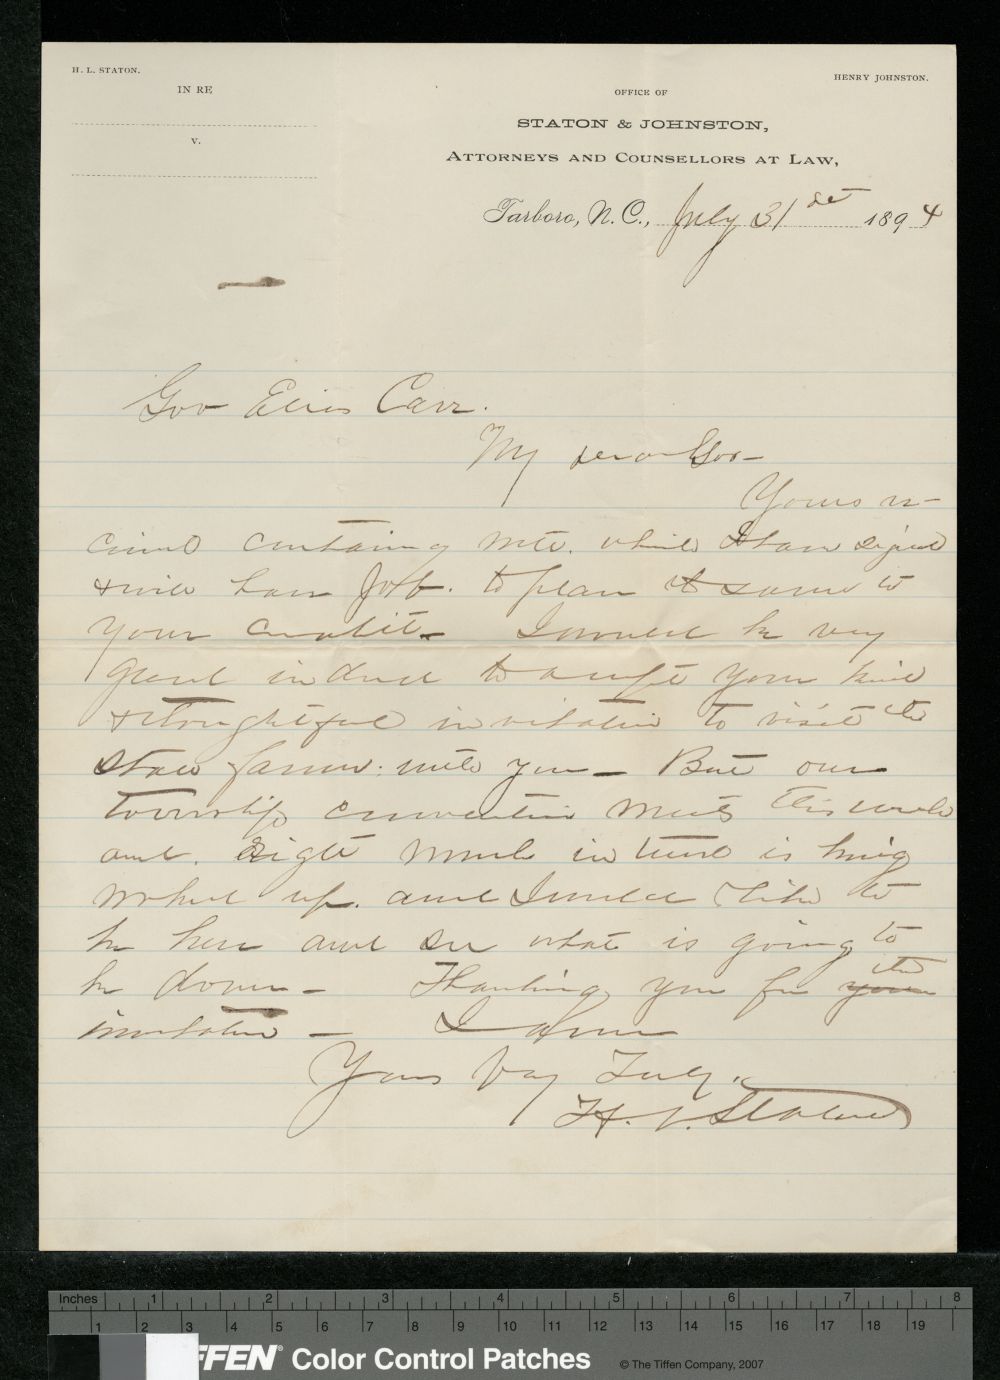 H. L. STATON.
HENRY JOHNSTON.
IN RE
v.
OFFICE OF
STATON & JOHNSTON,
ATTORNEYS AND COUNSELLORS AT LAW,
Tarboro, N. C., July 31st 1894
Gov Elias Carr.
My dear Gov—
Yours re-
ceived containing note. which I have signed
& will have Job. to place it same to
your credit— I would be very
glad indeed to accept your kind
& thoughtful invitation to visit the
State farms with you— But our
township convention meets this week
and. right much interest is being
worked up. and I would like to
be here and see what is going to
be done— Thanking you for your the
invitation — I am
Yours Very Truly.
H. L. Staton
Inches 1 2 3 4 5 6 7 8
1 2 3 4 5 6 7 8 9 10 11 12 13 14 15 16 17 18 19
FFEN® Color Control Patches © The Tiffen Company, 2007